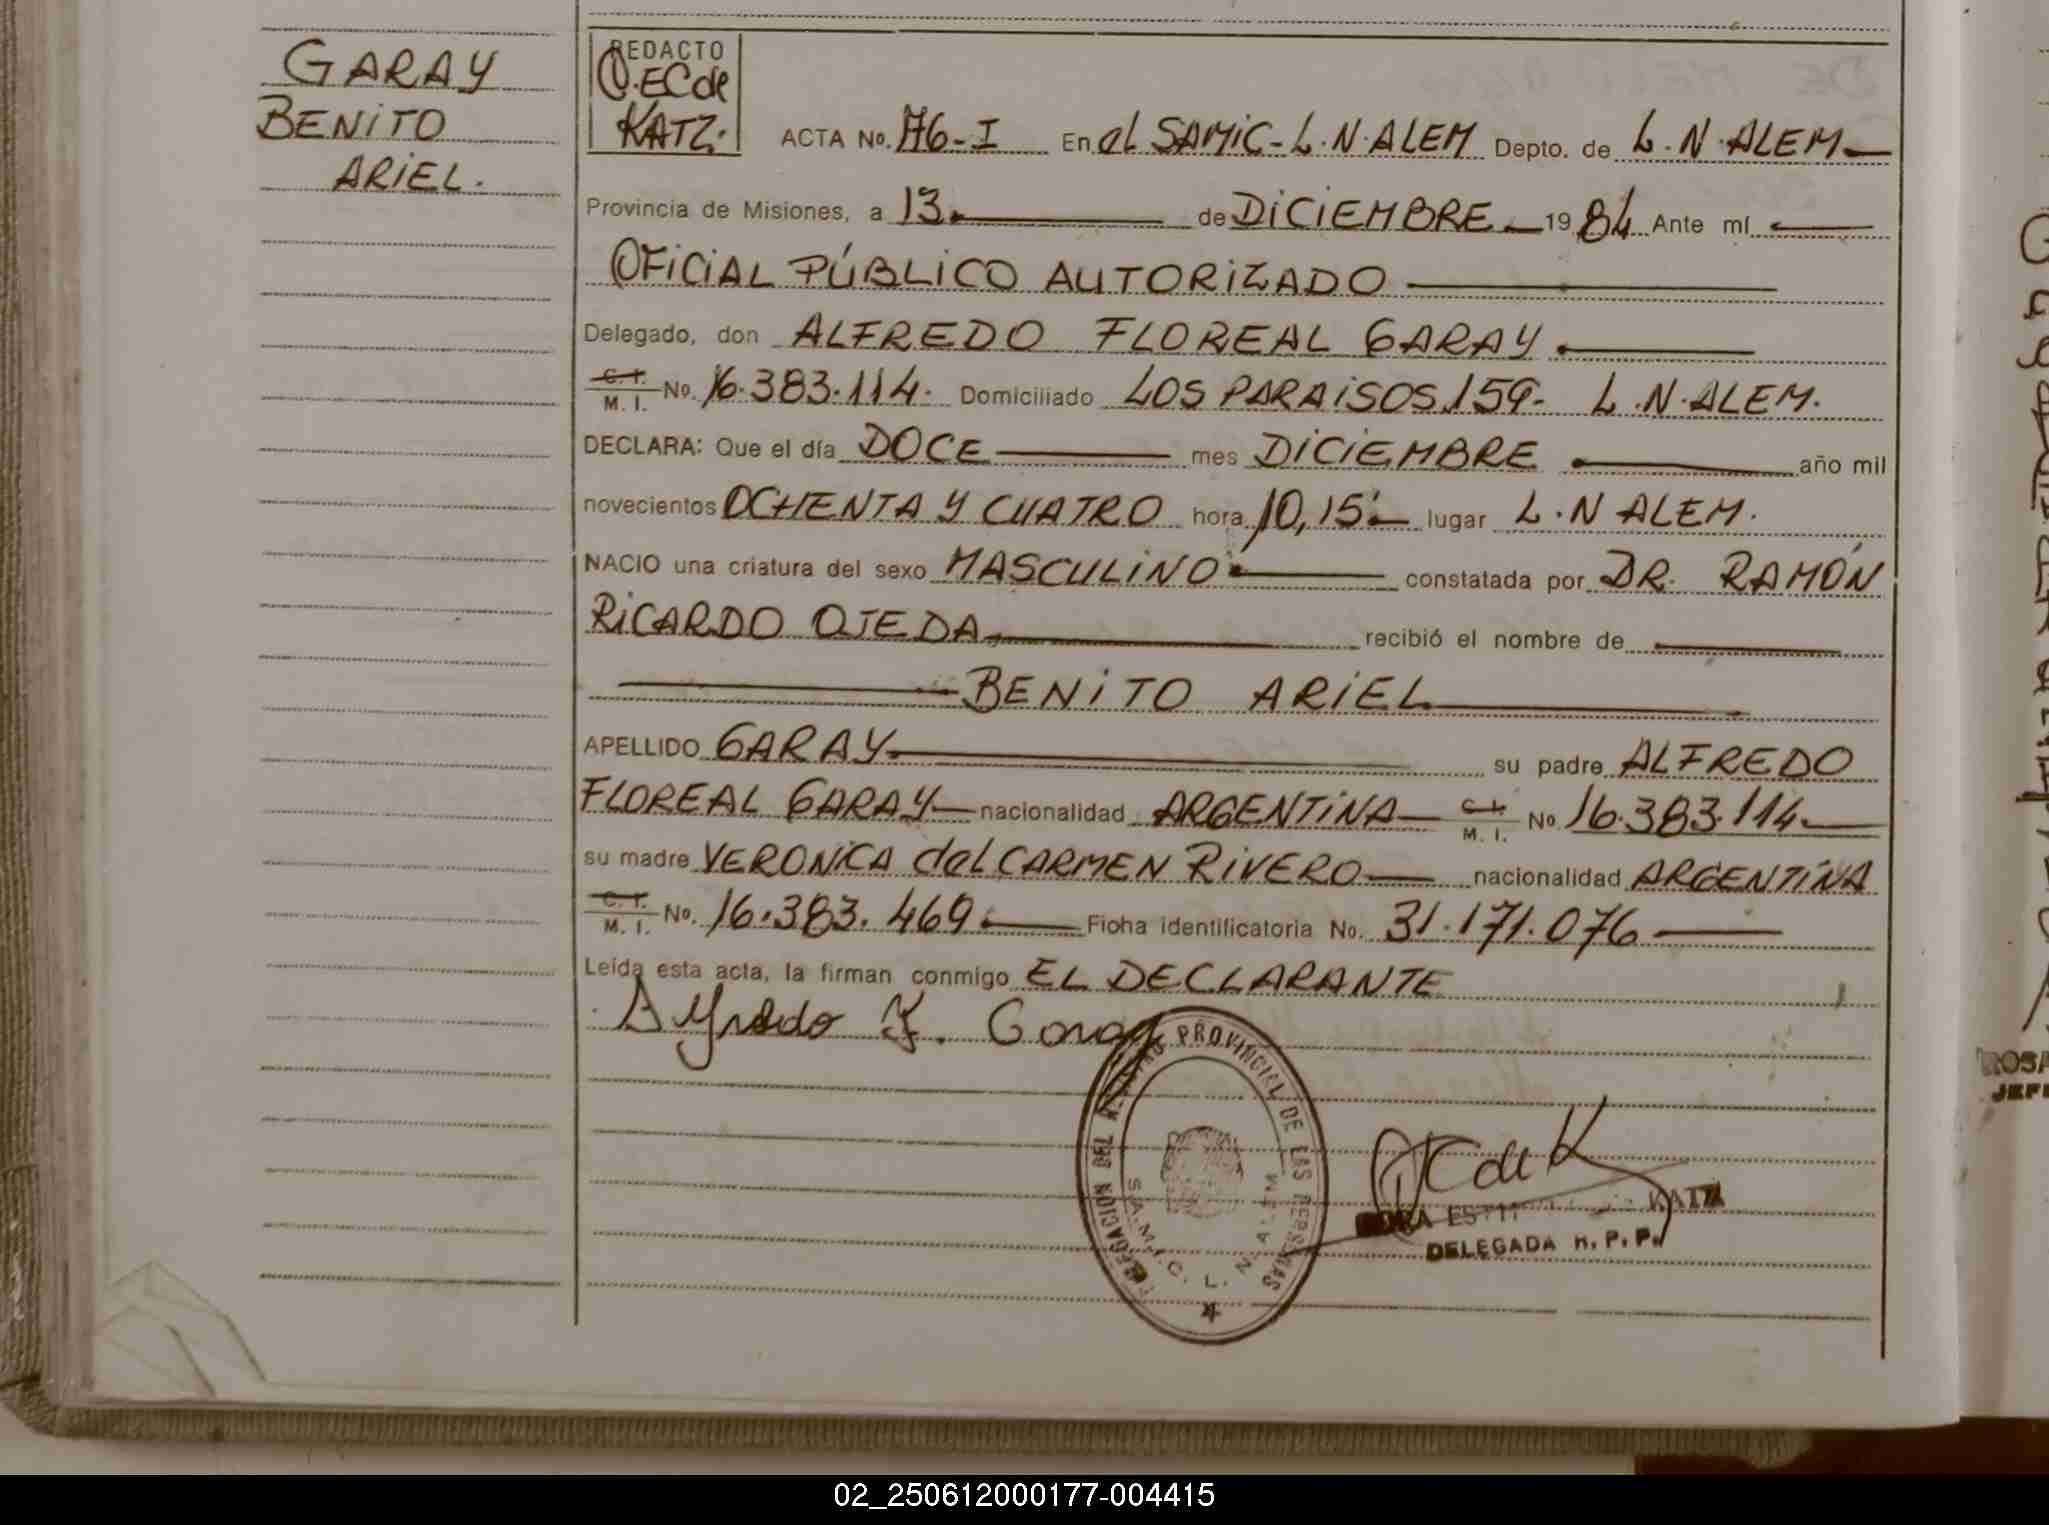 GARAY
BENITO
ARIEL.
REDACTO
O.EC de
KATZ.
ACTA No. 176-I En el SAMIC-L.N.ALEM Depto. de L.N.ALEM
Provincia de Misiones, a 13. de DICIEMBRE 1984 Ante mí
OFICIAL PÚBLICO AUTORIZADO
Delegado, don ALFREDO FLOREAL GARAY.
C. I.
M. I. No. 16.383.114. Domiciliado LOS PARAISOS 159- L.N.ALEM.
DECLARA: Que el día DOCE mes DICIEMBRE año mil
novecientos OCHENTA Y CUATRO hora 10,15' lugar L.N ALEM.
NACIO una criatura del sexo MASCULINO constatada por DR. RAMÓN
RICARDO OJEDA recibió el nombre de
BENITO ARIEL
APELLIDO GARAY su padre ALFREDO
FLOREAL GARAY nacionalidad ARGENTINA C. I. M. I. No 16.383.114
su madre VERONICA del CARMEN RIVERO nacionalidad ARGENTINA
C. I.
M. I. No. 16.383.469 Ficha identificatoria No. 31.171.076
Leída esta acta, la firman conmigo EL DECLARANTE
Alfredo F. Garay
DELEGACION DEL REGISTRO PROVINCIAL DE LAS PERSONAS
S.A.M.I.C. L. N. ALEM
KATZ
DELEGADA R. P. P.
ROSA
JEFE
02_250612000177-004415